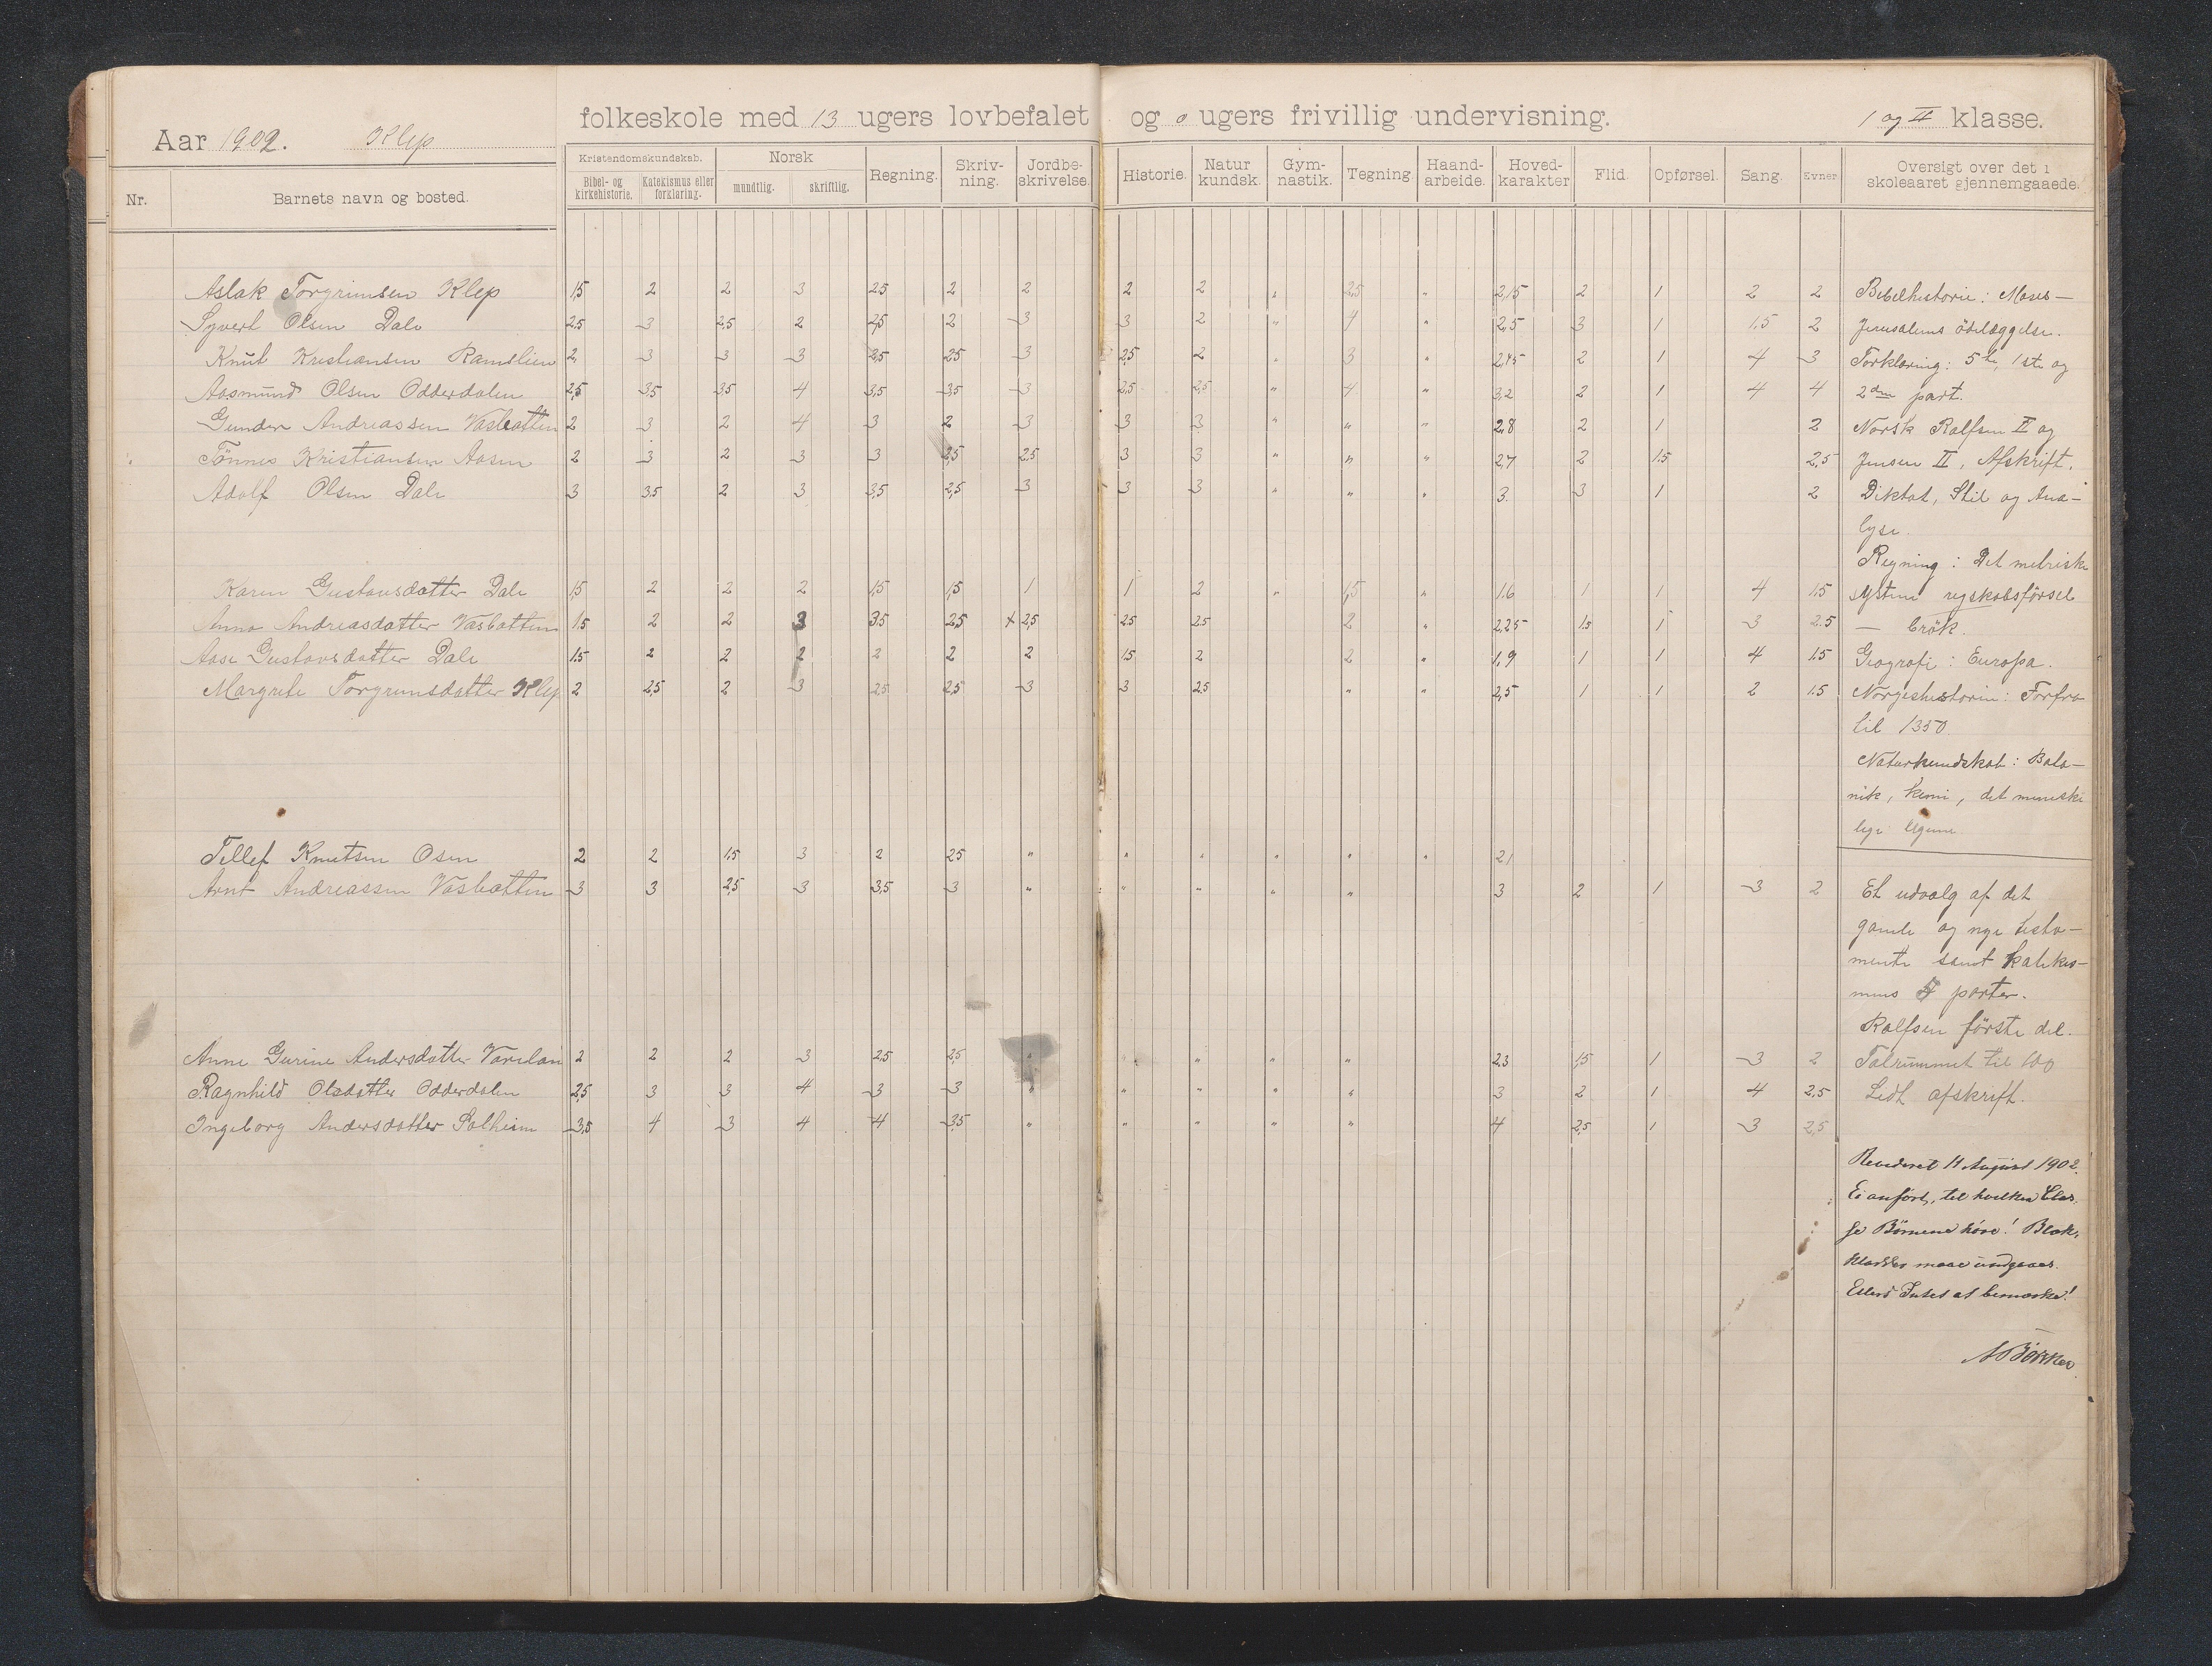 Aar 1902. Klep folkeskole med 13 ugers lovbefalet og 0 ugers frivillig undervisning. I og II klasse.
Nr. Barnets navn og bosted. Kristendomskundskab. Bibel- og kirkehistorie. Katekismus eller forklaring. Norsk mundtlig. skriftlig. Regning. Skriv-ning. Jordbe-skrivelse. Historie. Natur kundsk. Gym-nastik. Tegning Haand-arbeide. Hoved-karakter Flid. Opførsel. Sang. Evner. Oversigt over det i skoleaaret gjennemgaaede.
Aslak Torgrimsen Klep 1,5 2 2 3 2,5 2 2 2 2 " 2,5 " 2,15 2 1 2 2 Bibelhistorie: Moses —
Syvert Olsen Dale 2,5 3 2,5 2 2,5 2 3 3 2 " 4 " 2,5 3 1 1,5 2 Jerusalems ödelæggelse.
Knut Kristiansen Ramslien 2 3 3 3 2,5 2,5 3 2,5 2 " 3 " 2,45 2 1 4 3 Forklaring: 5te, 1ste og
Aasmund Olsen Odderdalen 2,5 3,5 3,5 4 3,5 3,5 3 2,5 2,5 " 4 " 3,2 2 1 4 4 2den part.
Gunder Andreassen Vasbotten 2 3 2 4 3 2 3 3 3 " " " 2,8 2 1 2 Norsk Rolfsen II og
Tönnes Kristiansen Aasen 2 3 2 3 3 2,5 2,5 3 3 " " " 2,7 2 1.5 2,5 Jensen II, Afskrift,
Adolf Olsen Dale 3 3,5 2 3 3,5 2,5 3 3 3 " " " 3 3 1 2 Diktat, Stil og Ana-
lyse.
Regning: Det metriske
Karen Gustavsdatter Dale 1,5 2 2 2 1,5 1,5 1 1 2 " 1,5 " 1.6 1 1 4 1.5 system regskabsförsel
Anna Andreasdatter Vasbotten 1.5 2 2 3 3.5 2,5 x 2,5 2.5 2.5 2 " 2,25 1.5 1 3 2.5 — brök.
Aase Gustavsdatter Dale 1.5 2 2 2 2 2 2 1.5 2 2 " 1,9 1 1 4 1.5 Geografi: Europa.
Margrete Torgrimsdatter Klep 2 2,5 2 3 2,5 2,5 3 3 2,5 " " 2,5 1 1 2 1.5 Norgeshistorie: Forfra
til 1350
Naturkundskab: Bota-
nik, kemi, det menneske
lige legeme.
Tellef Knutsen Osen 2 2 1.5 3 2 2,5 " " " " " " 2,1
Arnt Andreassen Vasbotten 3 3 2,5 3 3,5 3 " " " " " 3 2 1 3 2 Et udvalg af det
gamle og nye testa-
mente samt katekis-
mus 5 parter.
Rolfsen förste del.
Anne Gurine Andersdatter 2 2 2 3 2,5 2,5 " " " " " 2,3 1,5 1 3 2 Talrummet til 100
Ragnhild Olsdatter Odderdalen 2,5 3 3 4 3 3 " " " " " 3 2 1 4 2,5 Lidt afskrift.
Ingeborg Andersdatter Solheim 3,5 4 3 4 4 3,5 " " " " " 4 2,5 1 3 2,5
Revideret 11 August 1902.
Ei anført, til hvilken Clas-
se Børnene høre! Blæk-
kladder maae undgaaes.
Ellers Intet at bemærke!